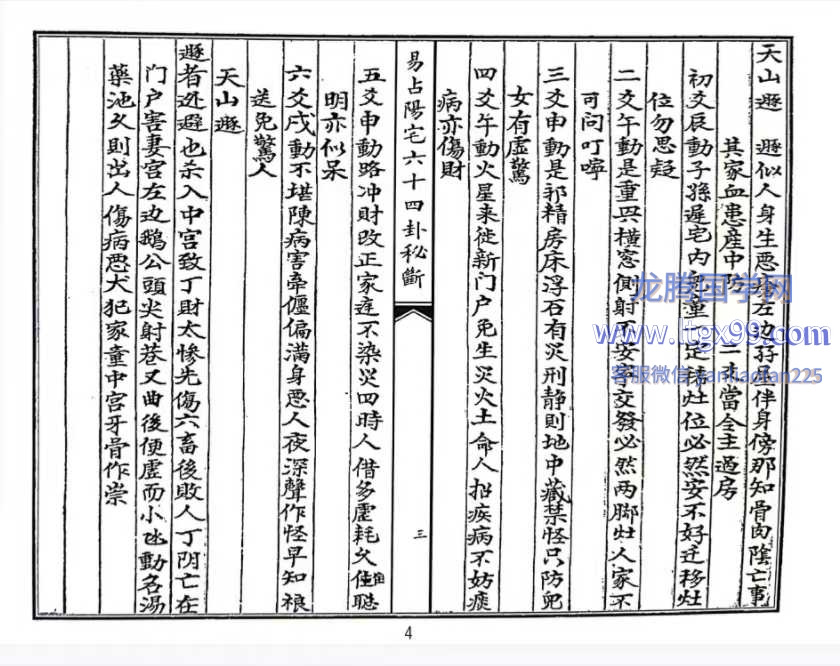 天山遯　遯似人身生悪瘡左边孖星伴身傍那知骨肉陰亡事
其家血患産中防　二爻當令主過房
初爻辰動子孫遲宅内　運　定移灶位必然安不好迁移灶
位勿思疑
二爻午動是重興横窓側射不安寧交發必然两脚灶人家不
可问叮嚀
三爻申動是邪精房床浮石有災刑静則地中藏禁怪只防兒
女有虛驚
四爻午動火星来徙新门户免生災火土命人招疾病不妨痕
病亦傷財
易占陽宅六十四卦秘斷
三
五爻申動路冲財改正家庭不染災四時人借多虛耗久住聪
明亦似呆
六爻戌動不堪陳病害牵僵偏满身悪人夜深聲作怪早知禳
送免驚人
天山遯
遯者迯避也杀入中宫致丁財太惨先傷六畜後敗人丁阴亡在
门户害妻宫左边鵝公頭尖射巷又曲後便虛而小　動名湯
藥池久則出人傷病悪犬犯家童中宫牙骨作崇
龙腾国学网
www.ltgx99.com
客服微信
4